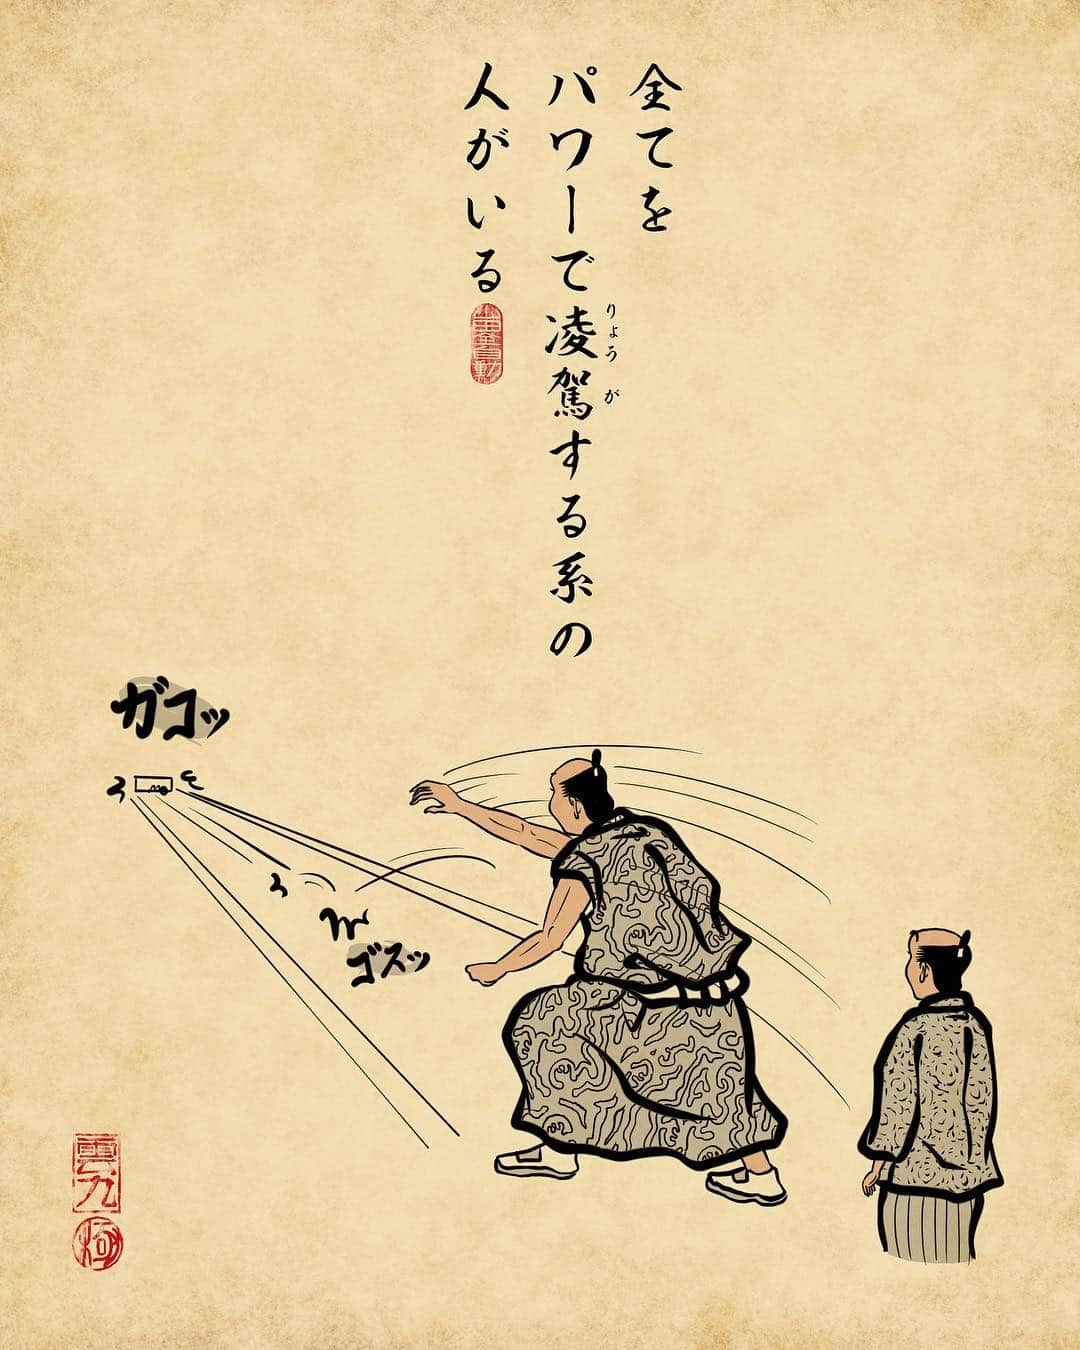 全てを
パワーで凌駕する系の
りょうが
人がいる
ガコッ
ゴスッ